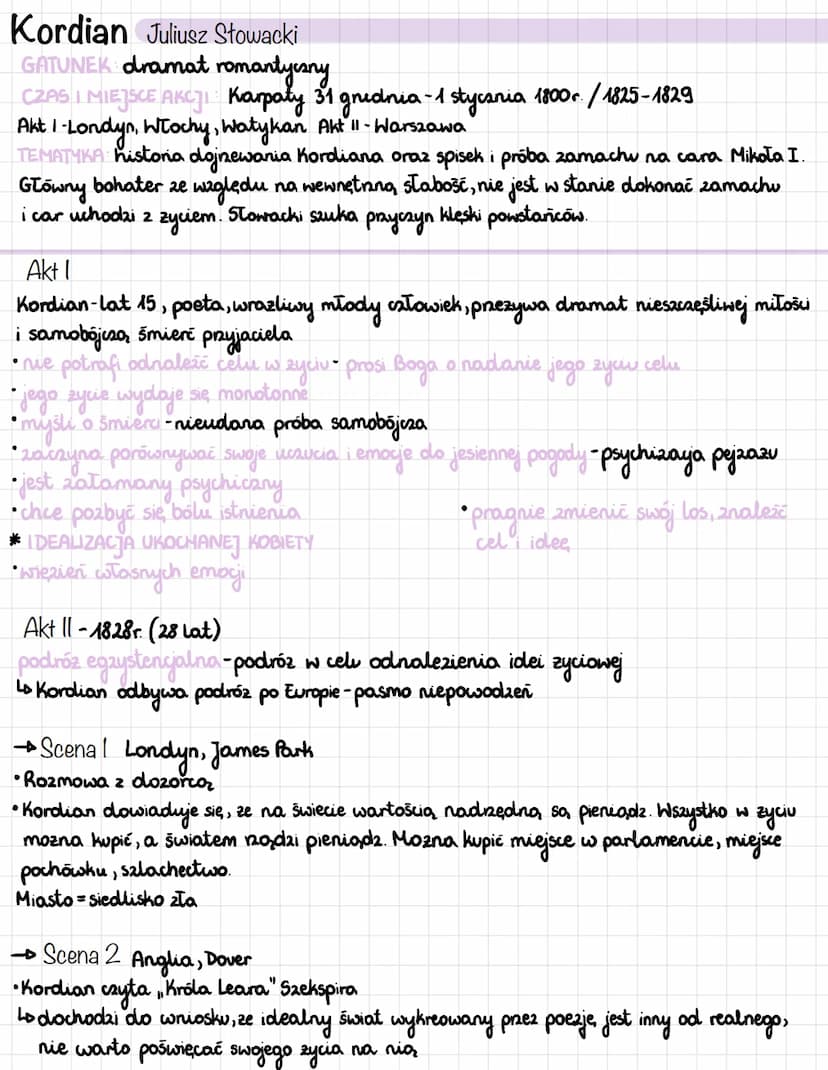 Kordian Juliusz Słowacki
GATUNEK: dramat romantyczny
CZAS I MIEJSCE AKCJI: Karpaty 31 grudnia-1 stycznia 1800r./1825-1829
Akt I -Londyn, Włochy, Watykan Akt II - Warszawa
TEMATYKA: historia dojrzewania Kordiana oraz spisek i próba zamachu na cara Mikoła I.
Główny bohater ze względu na wewnętrzną słabość, nie jest w stanie dokonać zamachu
i car uchodzi z życiem. Słowacki szuka przyczyn klęski powstańców.
Akt I
Kordian-lat 15, poeta, wrażliwy młody człowiek, przeżywa dramat nieszczęśliwej miłości
i samobójczą śmierć przyjaciela
• nie potrafi odnaleźć celu w życiu - prosi Boga o nadanie jego życiu celu
• jego życie wydaje się monotonne
• myśli o śmierci -nieudana próba samobójcza
• zaczyna porównywać swoje uczucia i emocje do jesiennej pogody -psychizacja pejzażu
• jest załamany psychiczny
• chce pozbyć się bólu istnienia
• pragnie zmienić swój los, znaleźć
cel i ideę
* IDEALIZACJA UKOCHANEJ KOBIETY
• więzień własnych emocji
Akt II - 1828r. (28 lat)
podróż egzystencjalna -podróż w celu odnalezienia idei życiowej
↳ Kordian odbywa podróż po Europie - pasmo niepowodzeń
→ Scena 1 Londyn, James Park
• Rozmowa z dozorcą
• Kordian dowiaduje się, że na świecie wartością nadrzędną są pieniądz. Wszystko w życiu
można kupić, a światem rządzi pieniądz. Można kupić miejsce w parlamencie, miejsce
pochówku, szlachectwo.
Miasto = siedlisko zła
→ Scena 2 Anglia, Dover
• Kordian czyta „Króla Leara" Szekspira
↳ dochodzi do wniosku, że idealny świat wykreowany przez poezję, jest inny od realnego,
nie warto poświęcać swojego życia na nią